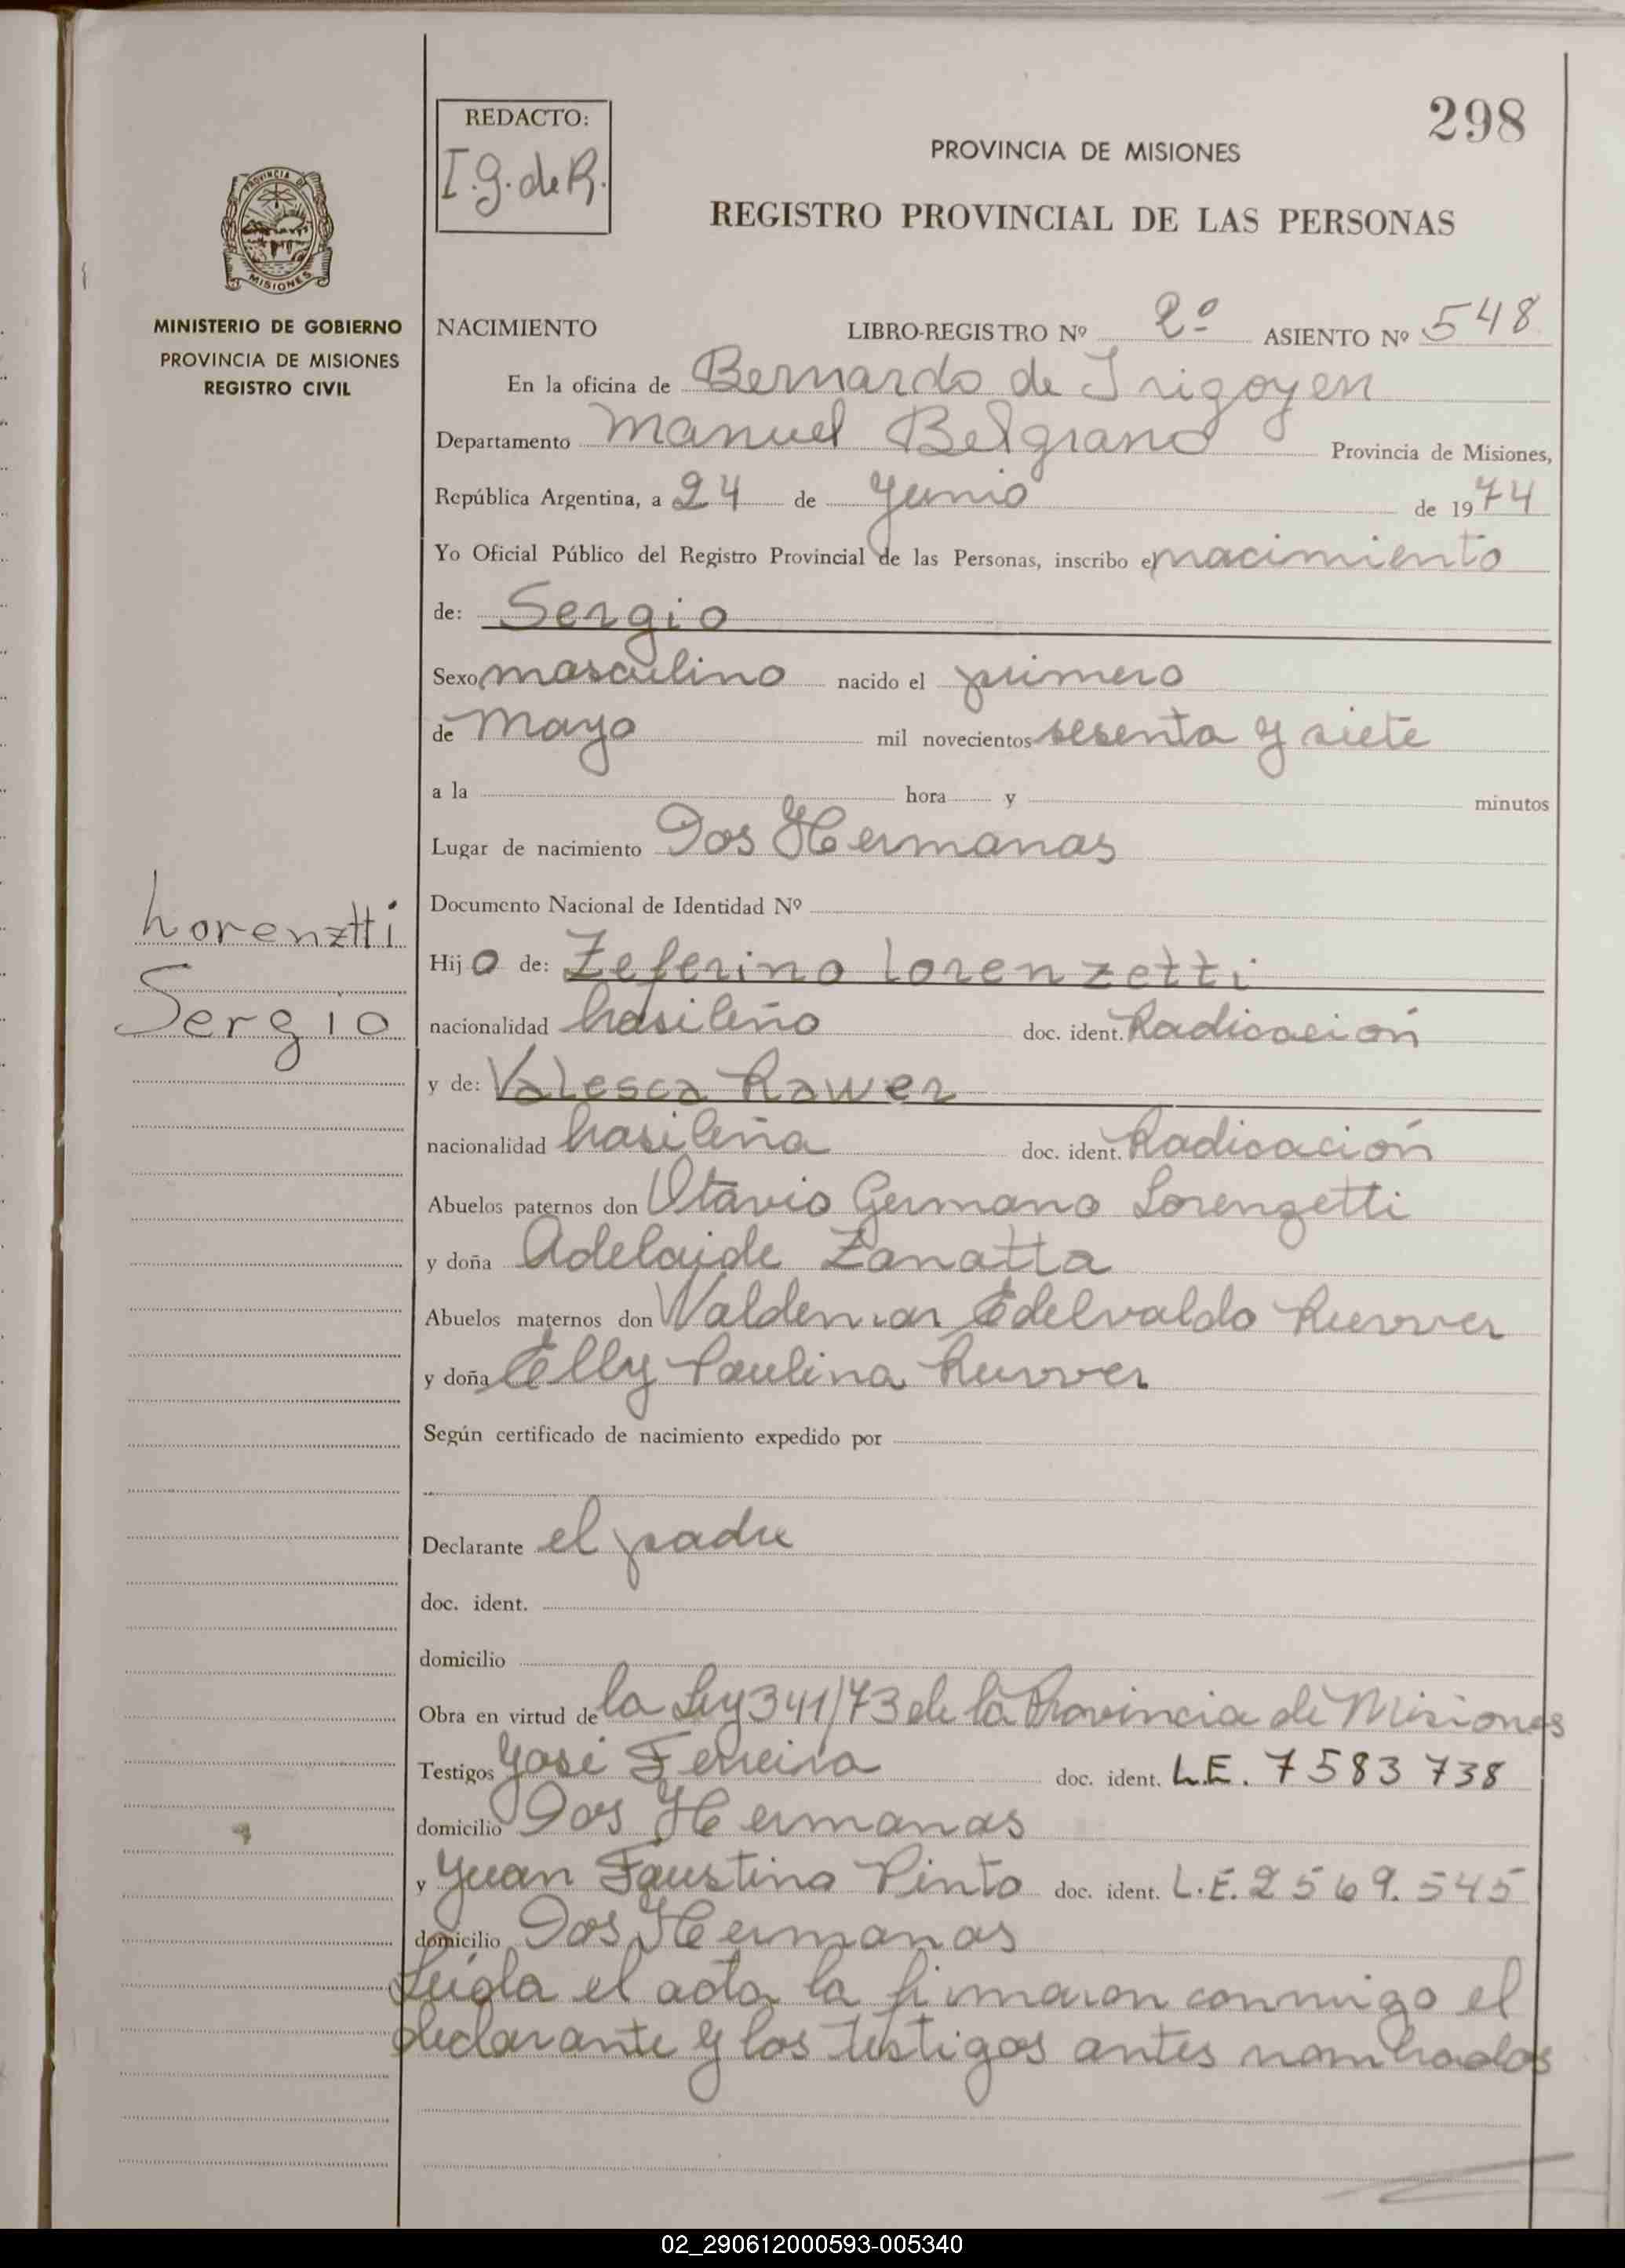 298
REDACTO:
I.G. de R.
PROVINCIA DE MISIONES
REGISTRO PROVINCIAL DE LAS PERSONAS
PROVINCIA DE
MISIONES
MINISTERIO DE GOBIERNO
PROVINCIA DE MISIONES
REGISTRO CIVIL
NACIMIENTO LIBRO-REGISTRO Nº 2º ASIENTO Nº 548
En la oficina de Bernardo de Irigoyen
Departamento Manuel Belgrano Provincia de Misiones,
República Argentina, a 24 de Junio de 1974
Yo Oficial Público del Registro Provincial de las Personas, inscribo el nacimiento
de: Sergio
Sexo masculino nacido el primero
de Mayo mil novecientos sesenta y siete
a la hora y minutos
Lugar de nacimiento Dos Hermanas
Documento Nacional de Identidad Nº
Lorenztti
Sergio
Hijo de: Zeferino Lorenzetti
nacionalidad brasileño doc. ident. Radicación
y de: Valesca Rawer
nacionalidad brasileña doc. ident. Radicación
Abuelos paternos don Otavio Germano Lorenzetti
y doña Adelaide Zanatta
Abuelos maternos don Waldemar Edelvaldo Ruwer
y doña Elly Paulina Ruwer
Según certificado de nacimiento expedido por
Declarante el padre
doc. ident.
domicilio
Obra en virtud de la Ley 341/73 de la Provincia de Misiones
Testigos José Ferreira doc. ident. L.E. 7583738
domicilio Dos Hermanas
y Juan Faustino Pinto doc. ident. L.E. 2569.545
domicilio Dos Hermanas
Leída el acta la firmaron conmigo el
declarante y los testigos antes nombrados
02_290612000593-005340